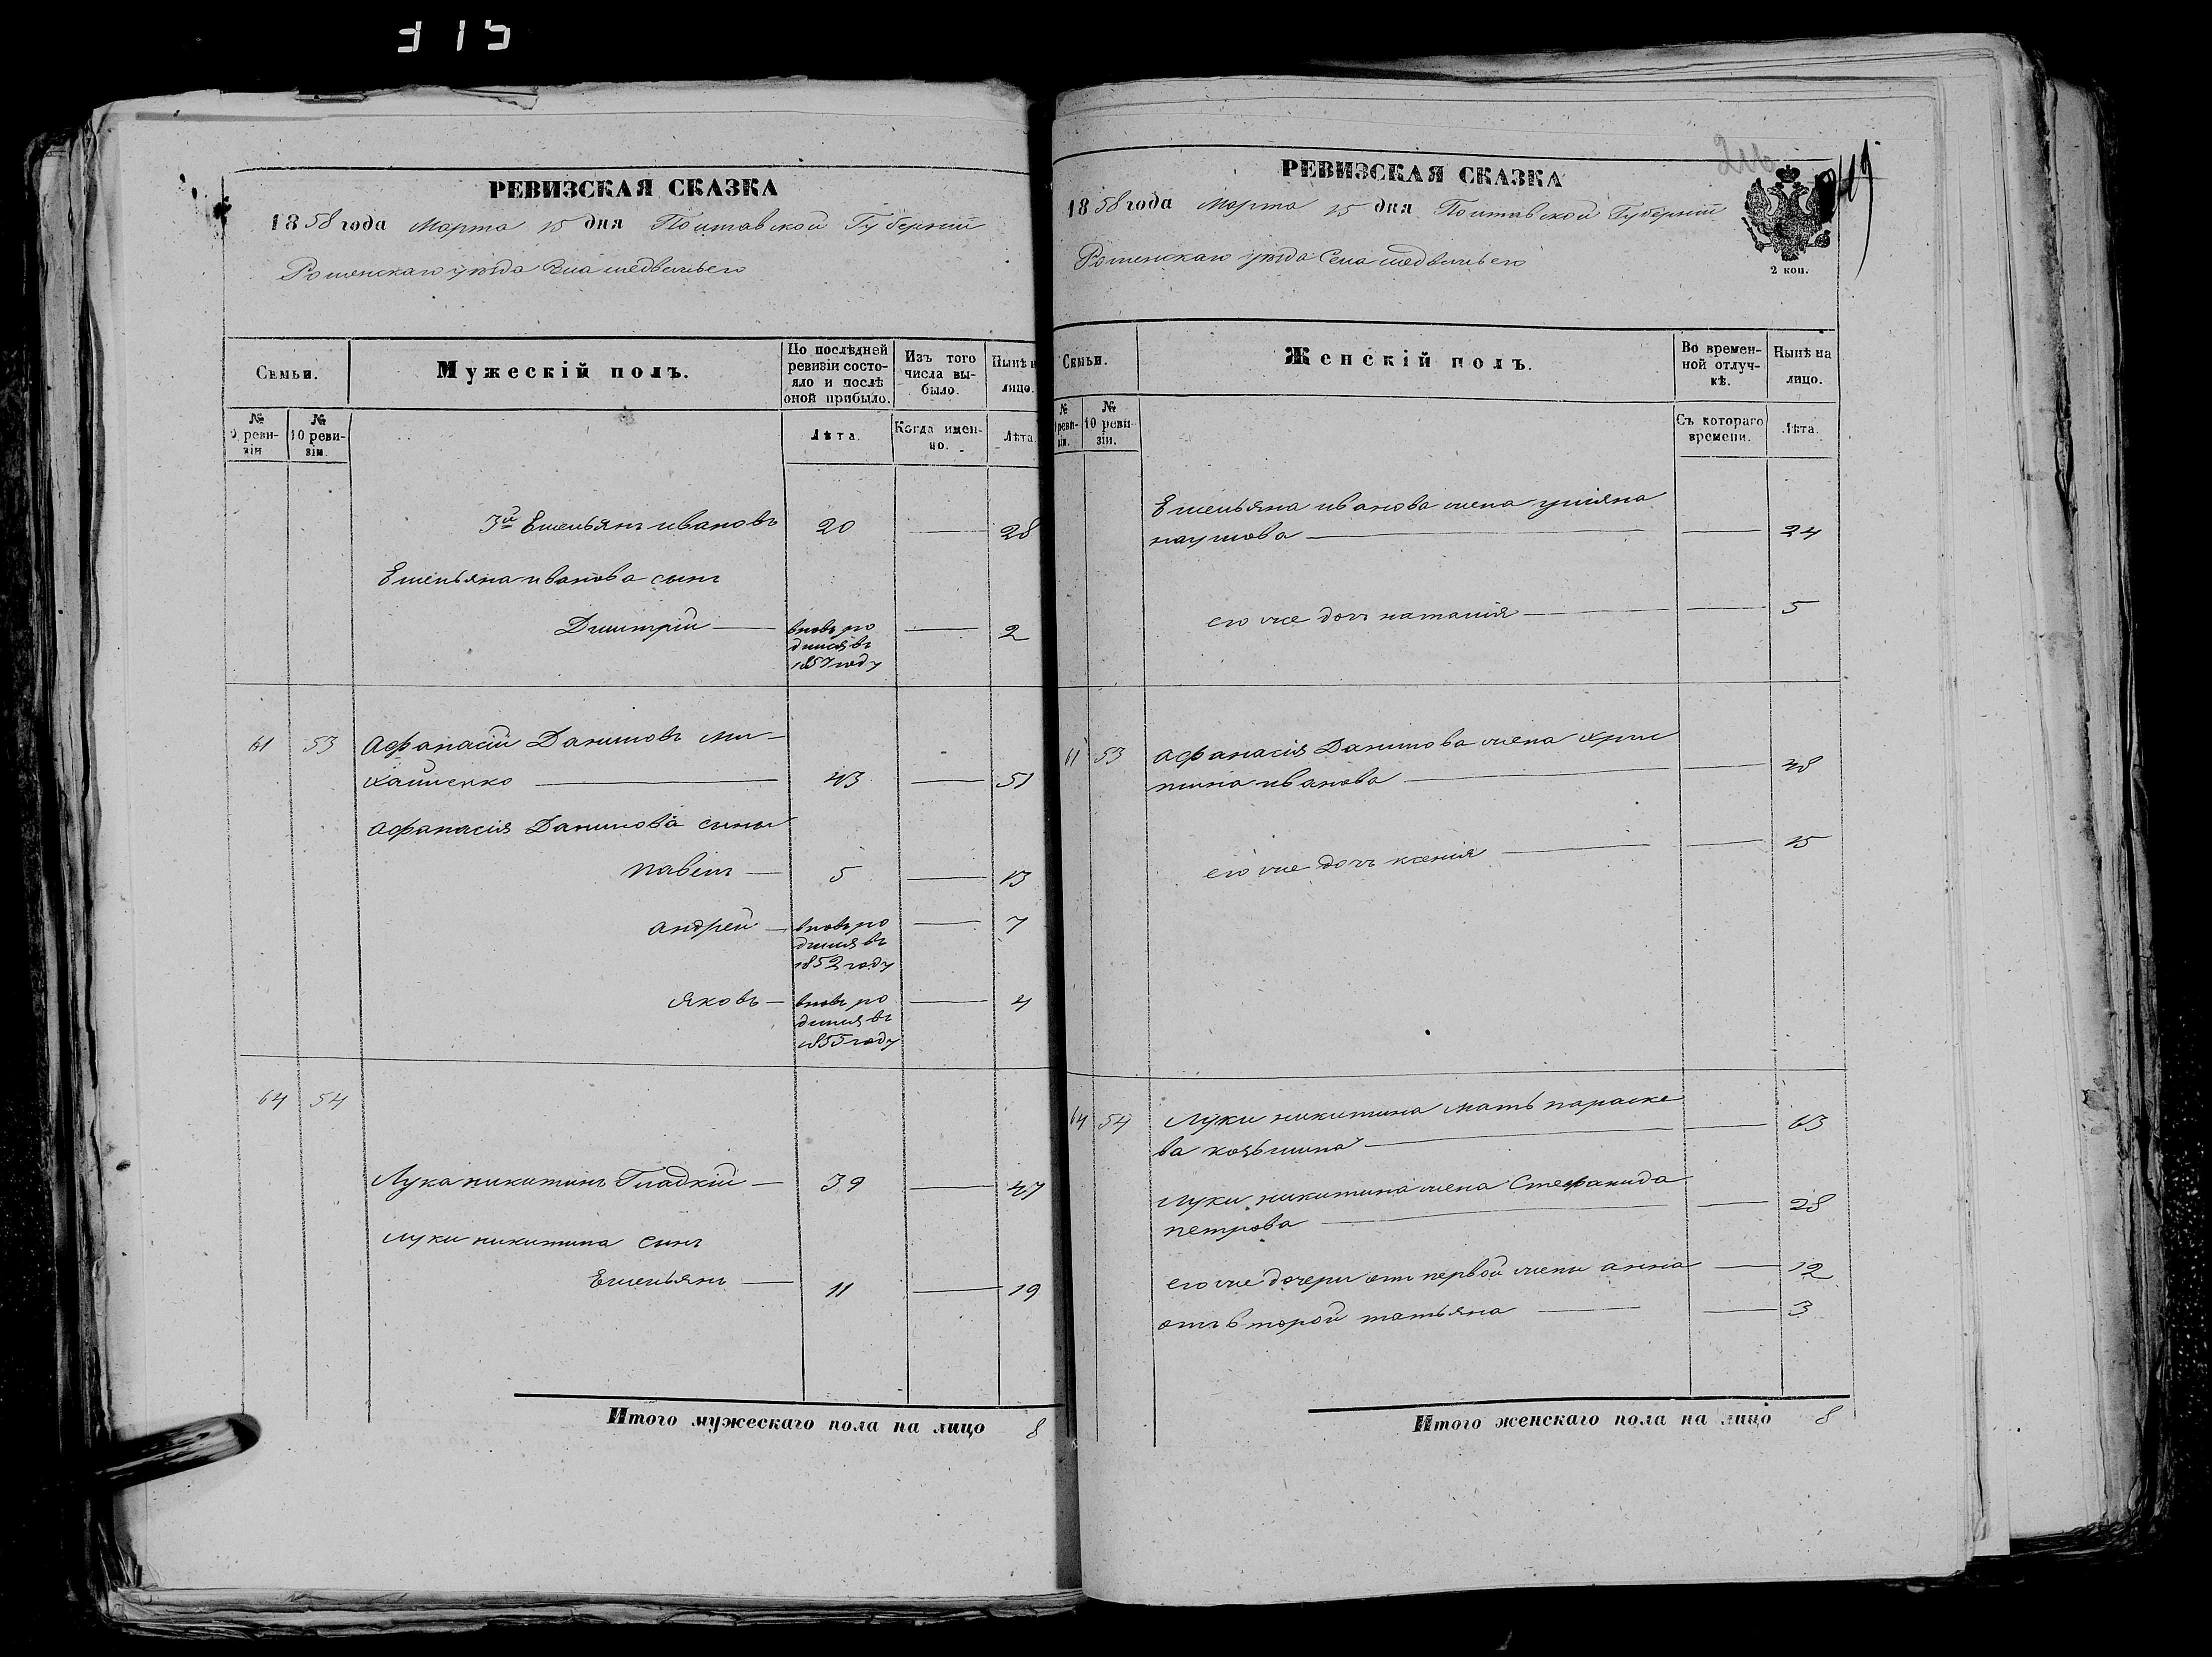 315
РЕВИЗСКАЯ СКАЗКА
1858 года Марта 15 дня Полтавской Губерніи
Роменскаго уѣзда Села медвежьего
Семьи.
Мужескій полъ.
По послѣдней ревизіи состояло и послѣ оной прибыло.
Изъ того числа выбыло.
Нынѣ на лицо.
№ 9 ревизіи
№ 10 ревизіи.
Лѣта.
Когда именно.
Лѣта
3й Емельянъ ивановъ 20 — 28
Емельяна иванова сынъ
Дмитрій — вновь ро 2
дился въ
1857 году
61 53 Афанасій Даниловъ Ми-
хайленко — 43 — 51
Афанасія Данилова сыны
павелъ — 5 — 13
андрей — вновь ро — 7
дился въ
1852 году
яковъ — вновь ро — 4
дился въ
1855 году
64 54
Лука никитинъ Гладкій — 39 — 47
луки никитина сынъ
Емельянъ — 11 — 19
Итого мужескаго пола на лицо 8
РЕВИЗСКАЯ СКАЗКА
1858 года Марта 15 дня Полтавской Губерніи
Роменскаго уѣзда Села медвежьего
2 коп.
Семьи.
Женскій полъ.
Во временной отлучкѣ.
Нынѣ на лицо.
№ 9 ревизіи.
№ 10 ревизіи.
Съ котораго времени.
Лѣта.
Емельяна иванова жена уліяна
наумова — — 24
его же дочь наталія — — 5
61 53 Афанасія Данилова жена хрис
тина иванова — — 48
его же дочь ксенія — — 15
64 54 Луки никитина мать параске
ва козьмина — — 63
Луки никитина жена Стефанида
петрова — — 28
его же дочери отъ первой жены анна — 12
отъ второй татьяна — — 3
Итого женскаго пола на лицо 8